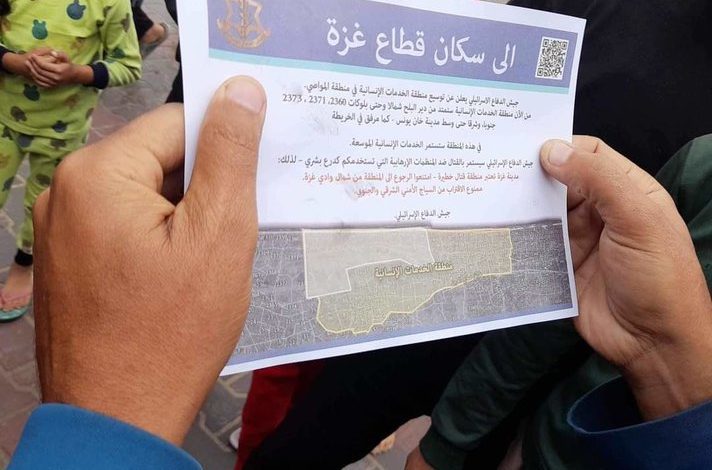 الى سكان قطاع غزة
جيش الدفاع الاسرائيلي يعلن عن توسيع منطقة الخدمات الإنسانية في منطقة المواصي.
من الآن منطقة الخدمات الإنسانية ستمتد من دير البلح شمالا وحتى بلوكات 2360، 2371 ، 2373
جنوبا، وشرقا حتى وسط مدينة خان يونس - كما مرفق في الخريطة
في هذه المنطقة ستستمر الخدمات الإنسانية الموسعة.
جيش الدفاع الإسرائيلي سيستمر بالقتال ضد المنظمات الإرهابية التي تستخدمكم كدرع بشري – لذلك:
مدينة غزة تعتبر منطقة قتال خطيرة - امتنعوا الرجوع الى المنطقة من شمال وادي غزة.
ممنوع الاقتراب من السياج الأمني الشرقي والجنوبي.
جيش الدفاع الإسرائيلي.
منطقة الخدمات الإنسانية